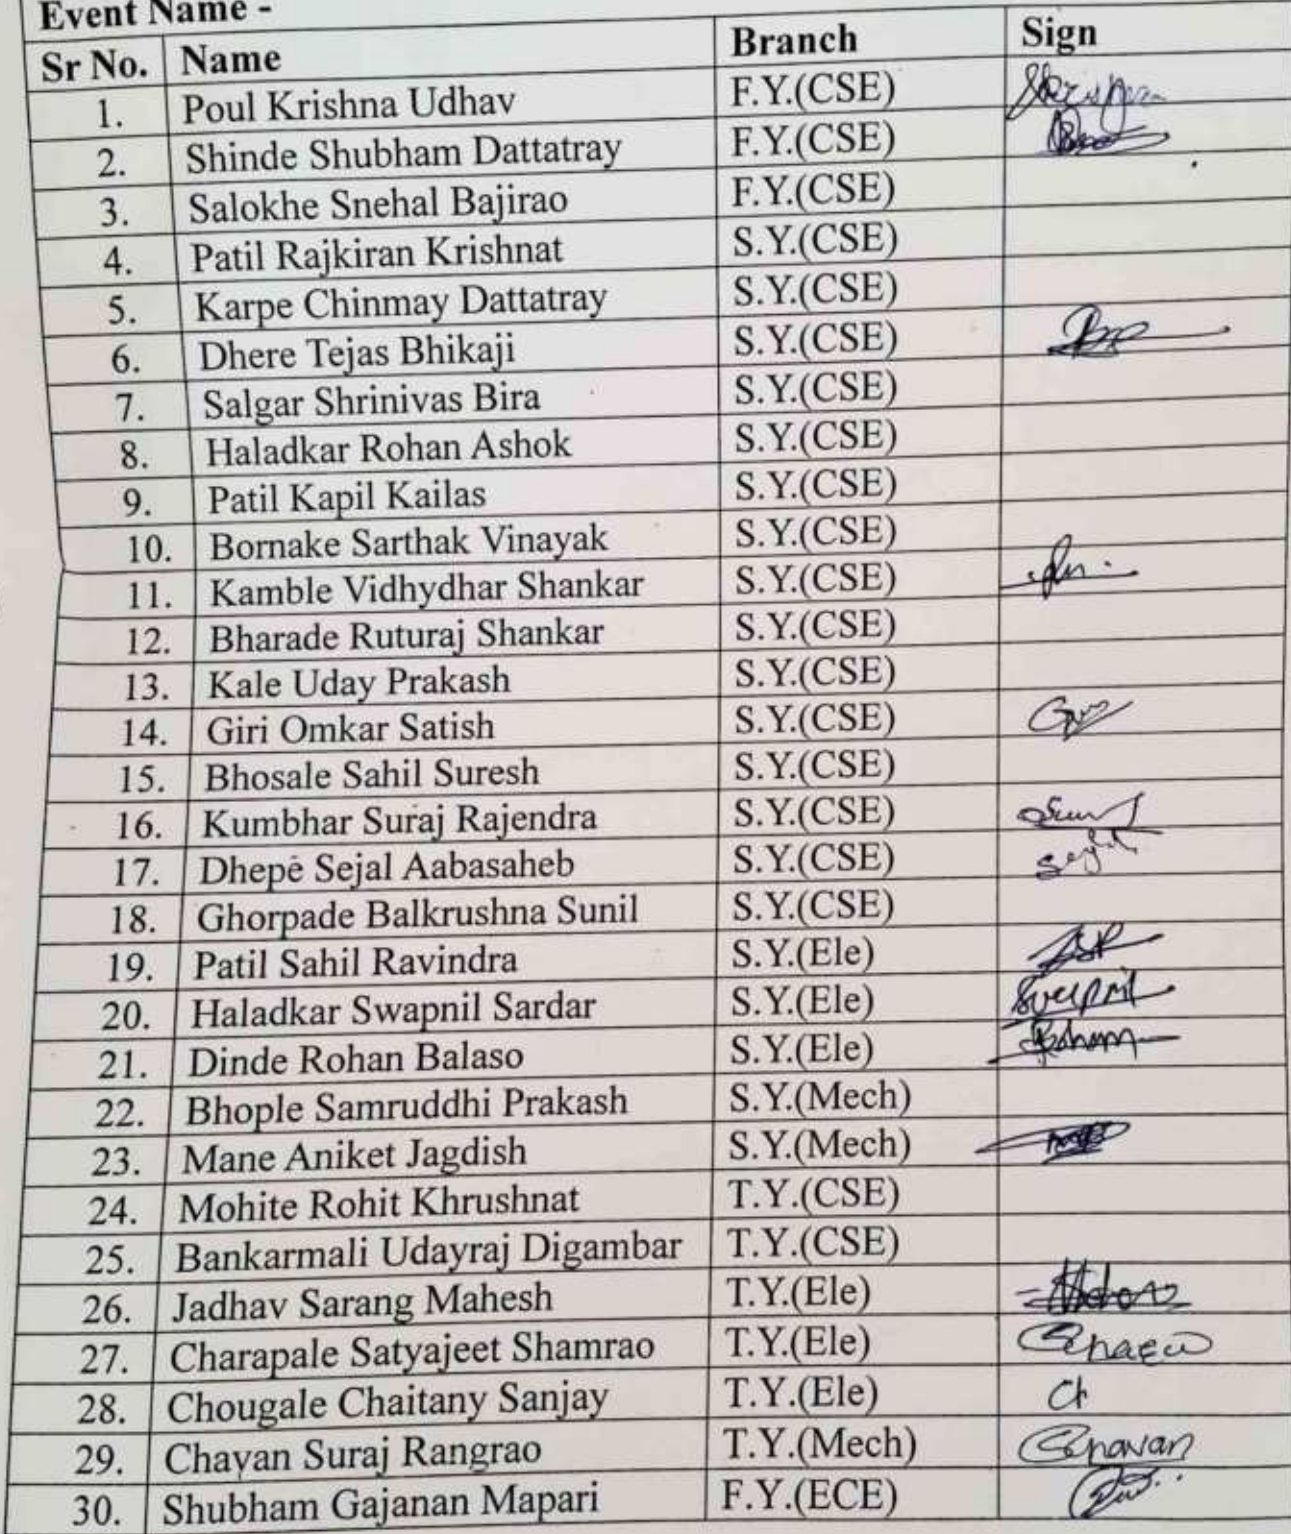 Event Name -
Sr No. Name Branch Sign
1. Poul Krishna Udhav F.Y.(CSE) Krishna
2. Shinde Shubham Dattatray F.Y.(CSE)
3. Salokhe Snehal Bajirao F.Y.(CSE)
4. Patil Rajkiran Krishnat S.Y.(CSE)
5. Karpe Chinmay Dattatray S.Y.(CSE)
6. Dhere Tejas Bhikaji S.Y.(CSE)
7. Salgar Shrinivas Bira S.Y.(CSE)
8. Haladkar Rohan Ashok S.Y.(CSE)
9. Patil Kapil Kailas S.Y.(CSE)
10. Bornake Sarthak Vinayak S.Y.(CSE)
11. Kamble Vidhydhar Shankar S.Y.(CSE)
12. Bharade Ruturaj Shankar S.Y.(CSE)
13. Kale Uday Prakash S.Y.(CSE)
14. Giri Omkar Satish S.Y.(CSE)
15. Bhosale Sahil Suresh S.Y.(CSE)
16. Kumbhar Suraj Rajendra S.Y.(CSE)
17. Dhepe Sejal Aabasaheb S.Y.(CSE)
18. Ghorpade Balkrushna Sunil S.Y.(CSE)
19. Patil Sahil Ravindra S.Y.(Ele)
20. Haladkar Swapnil Sardar S.Y.(Ele) Swapnil
21. Dinde Rohan Balaso S.Y.(Ele) Rohan
22. Bhople Samruddhi Prakash S.Y.(Mech)
23. Mane Aniket Jagdish S.Y.(Mech)
24. Mohite Rohit Khrushnat T.Y.(CSE)
25. Bankarmali Udayraj Digambar T.Y.(CSE)
26. Jadhav Sarang Mahesh T.Y.(Ele)
27. Charapale Satyajeet Shamrao T.Y.(Ele)
28. Chougale Chaitany Sanjay T.Y.(Ele)
29. Chavan Suraj Rangrao T.Y.(Mech) Chavan
30. Shubham Gajanan Mapari F.Y.(ECE)